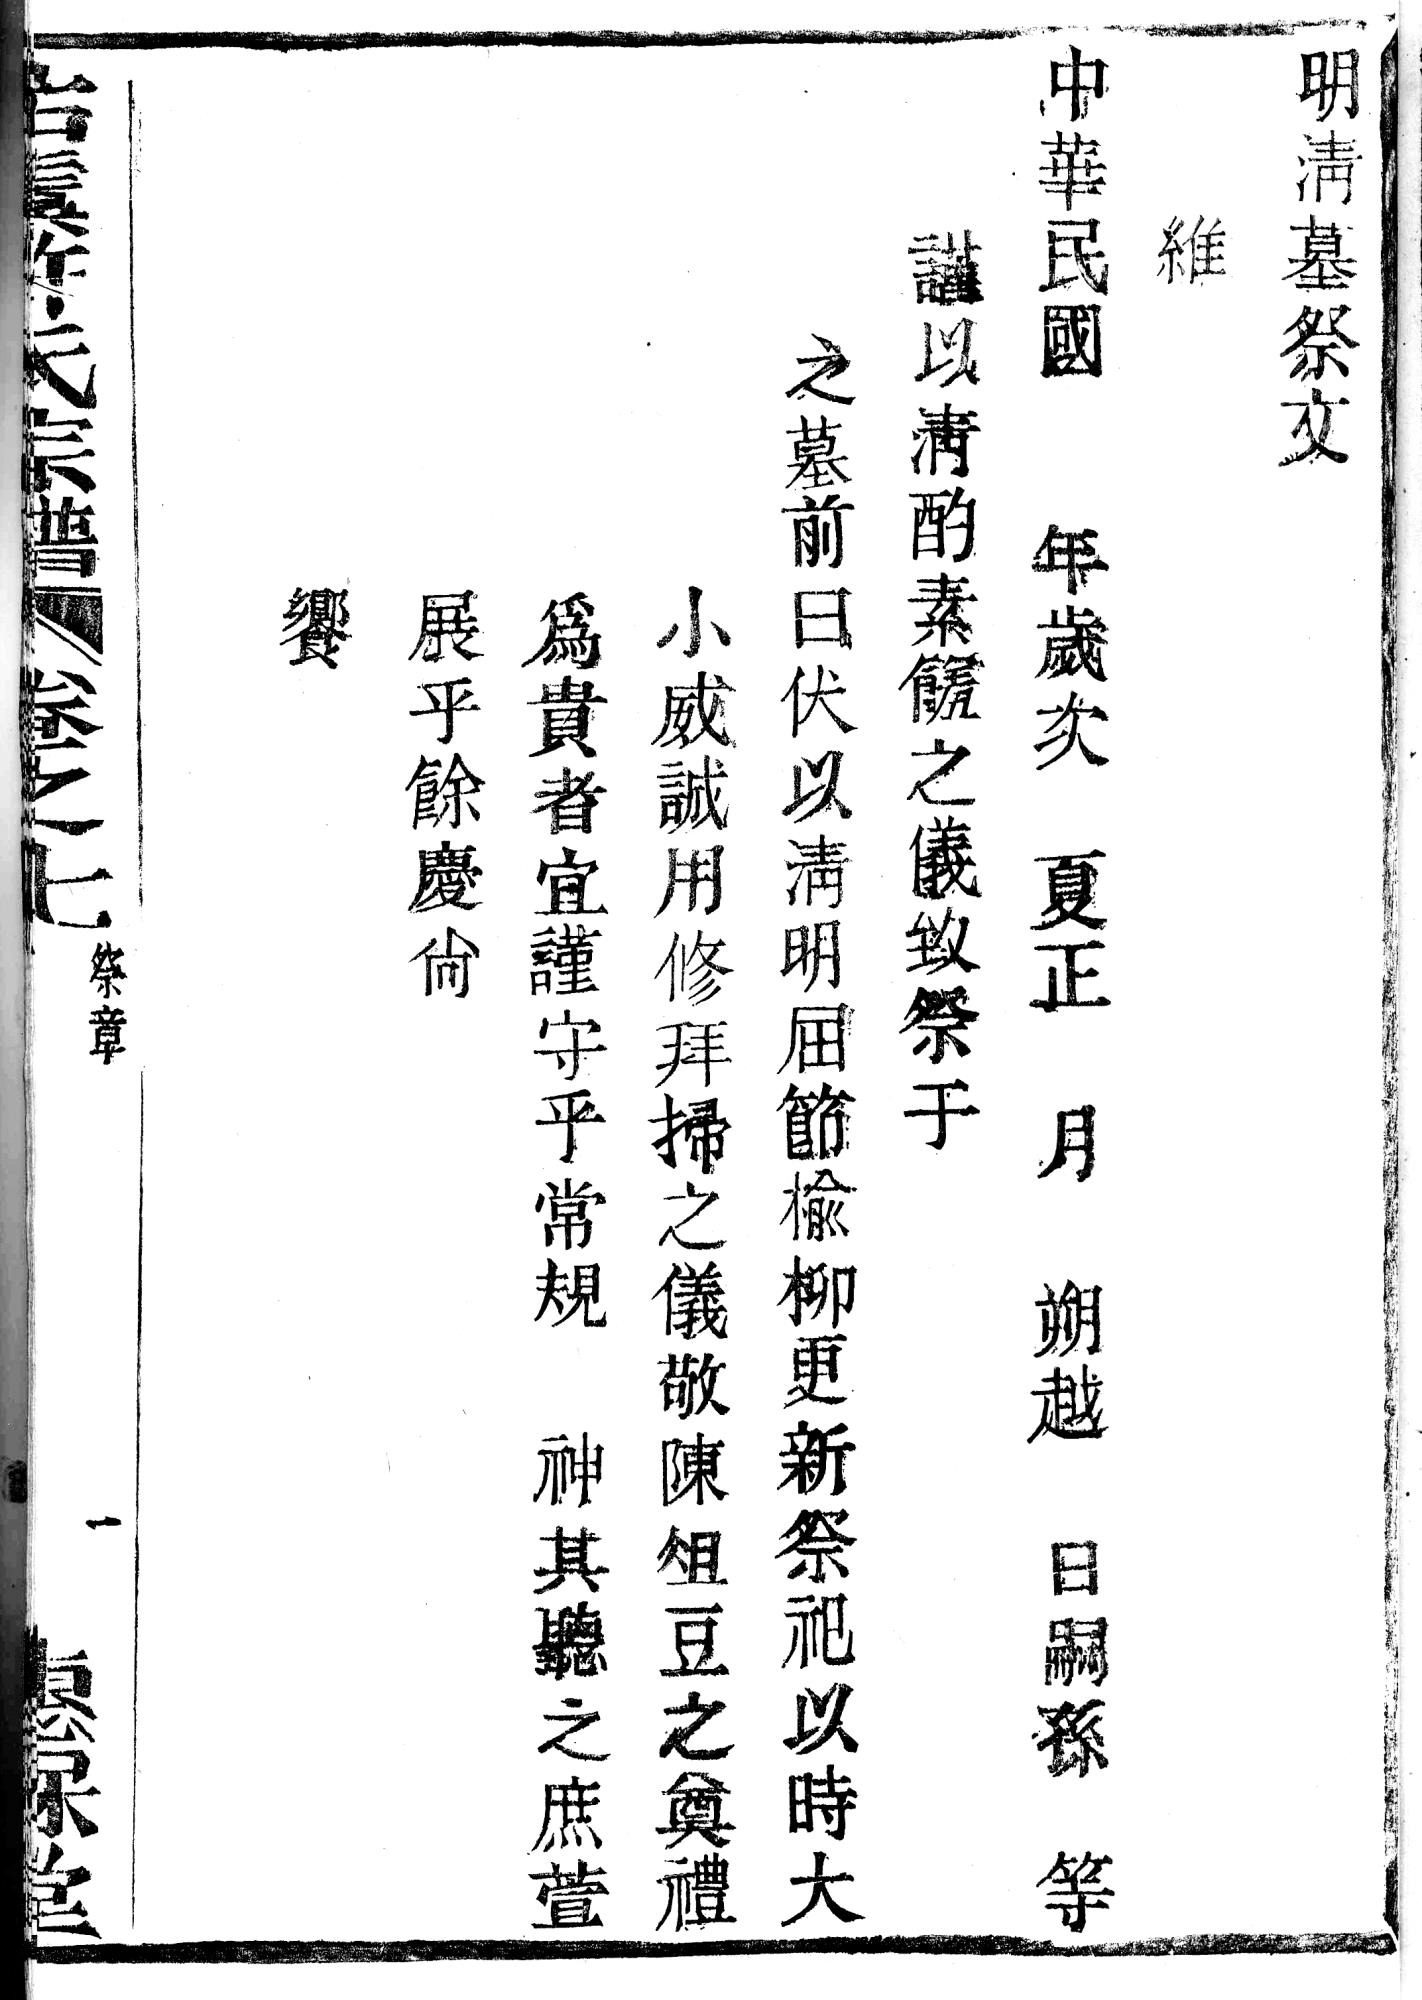 明清墓祭文
維
中華民國 年歲次 夏正 月 朔越 日嗣孫 等
謹以清酌素餚之儀致祭于
之墓前曰伏以清明届節榆柳更新祭祀以時大
小威誠用修拜掃之儀敬陳俎豆之奠禮
爲貴者宜謹守乎常規 神其聽之庶萱
展乎餘慶尙
饗
氏宗譜 卷之七 祭章 一 堂